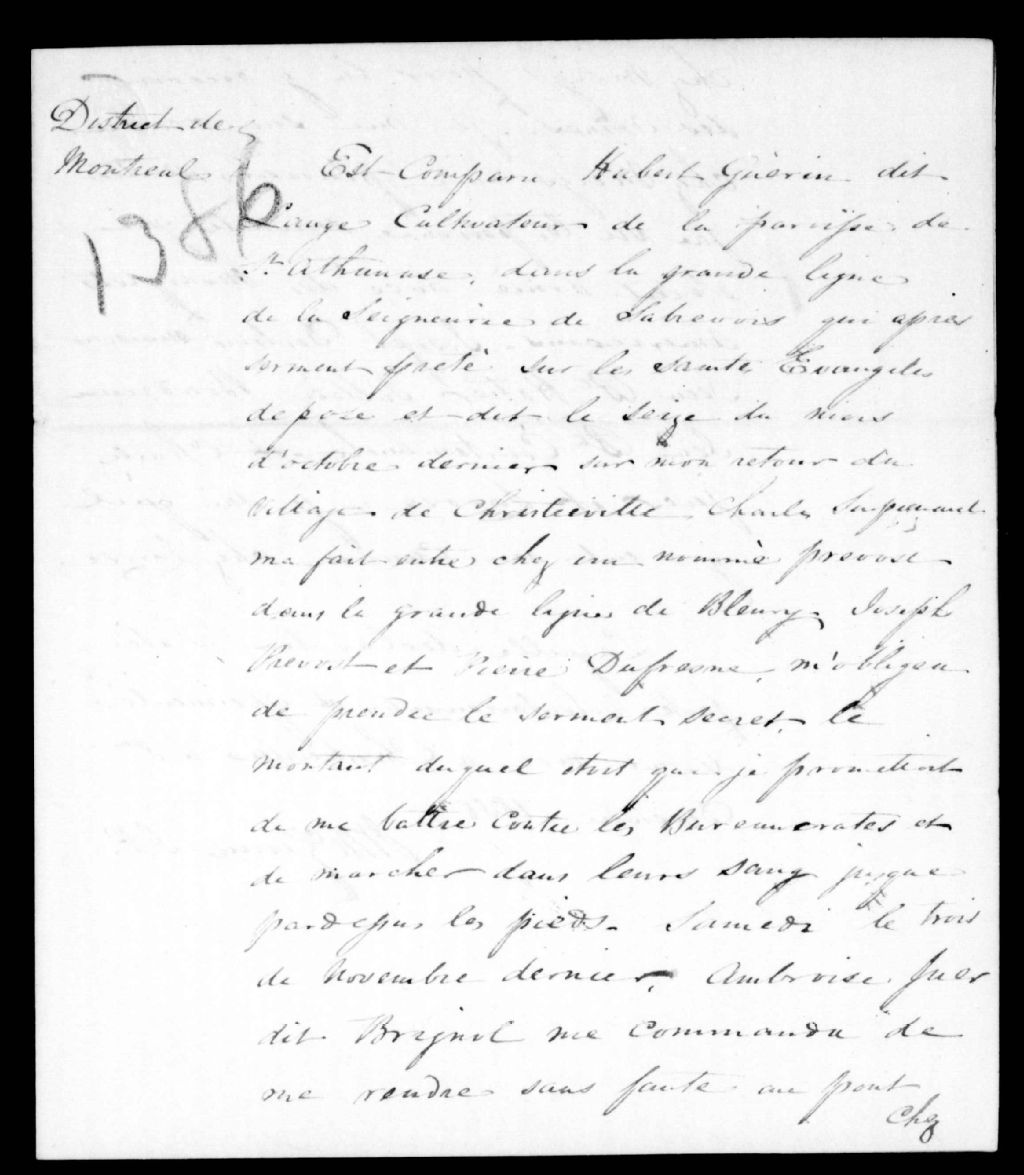 District de
Montreal
1386
Est Comparu Hubert Guérin dit
Lange Cultivateur de la paroisse de
St Athanase, dans la grande ligne
de la Seigneurie de Sabrevois qui apres
serment preté sur les saints Evangiles
depose et dit le seize du mois
d'octobre dernier sur mon retour du
village de Christieville Charles Surprenant
ma fait entré chez un nommé prevost
dans la grande ligne de Bleury, Joseph
Prevost et Pierre Dufresne, m'obligea
de prendre le serment secret, le
montant duquel etoit que je promettoit
de me battre contre les Bureaucrates et
de marcher dans leurs sang jusque
pardessus les pieds. Samedi le trois
de Novembre dernier, Ambroise
dit Brignol me commanda de
me rendre sans faute au pont
chez